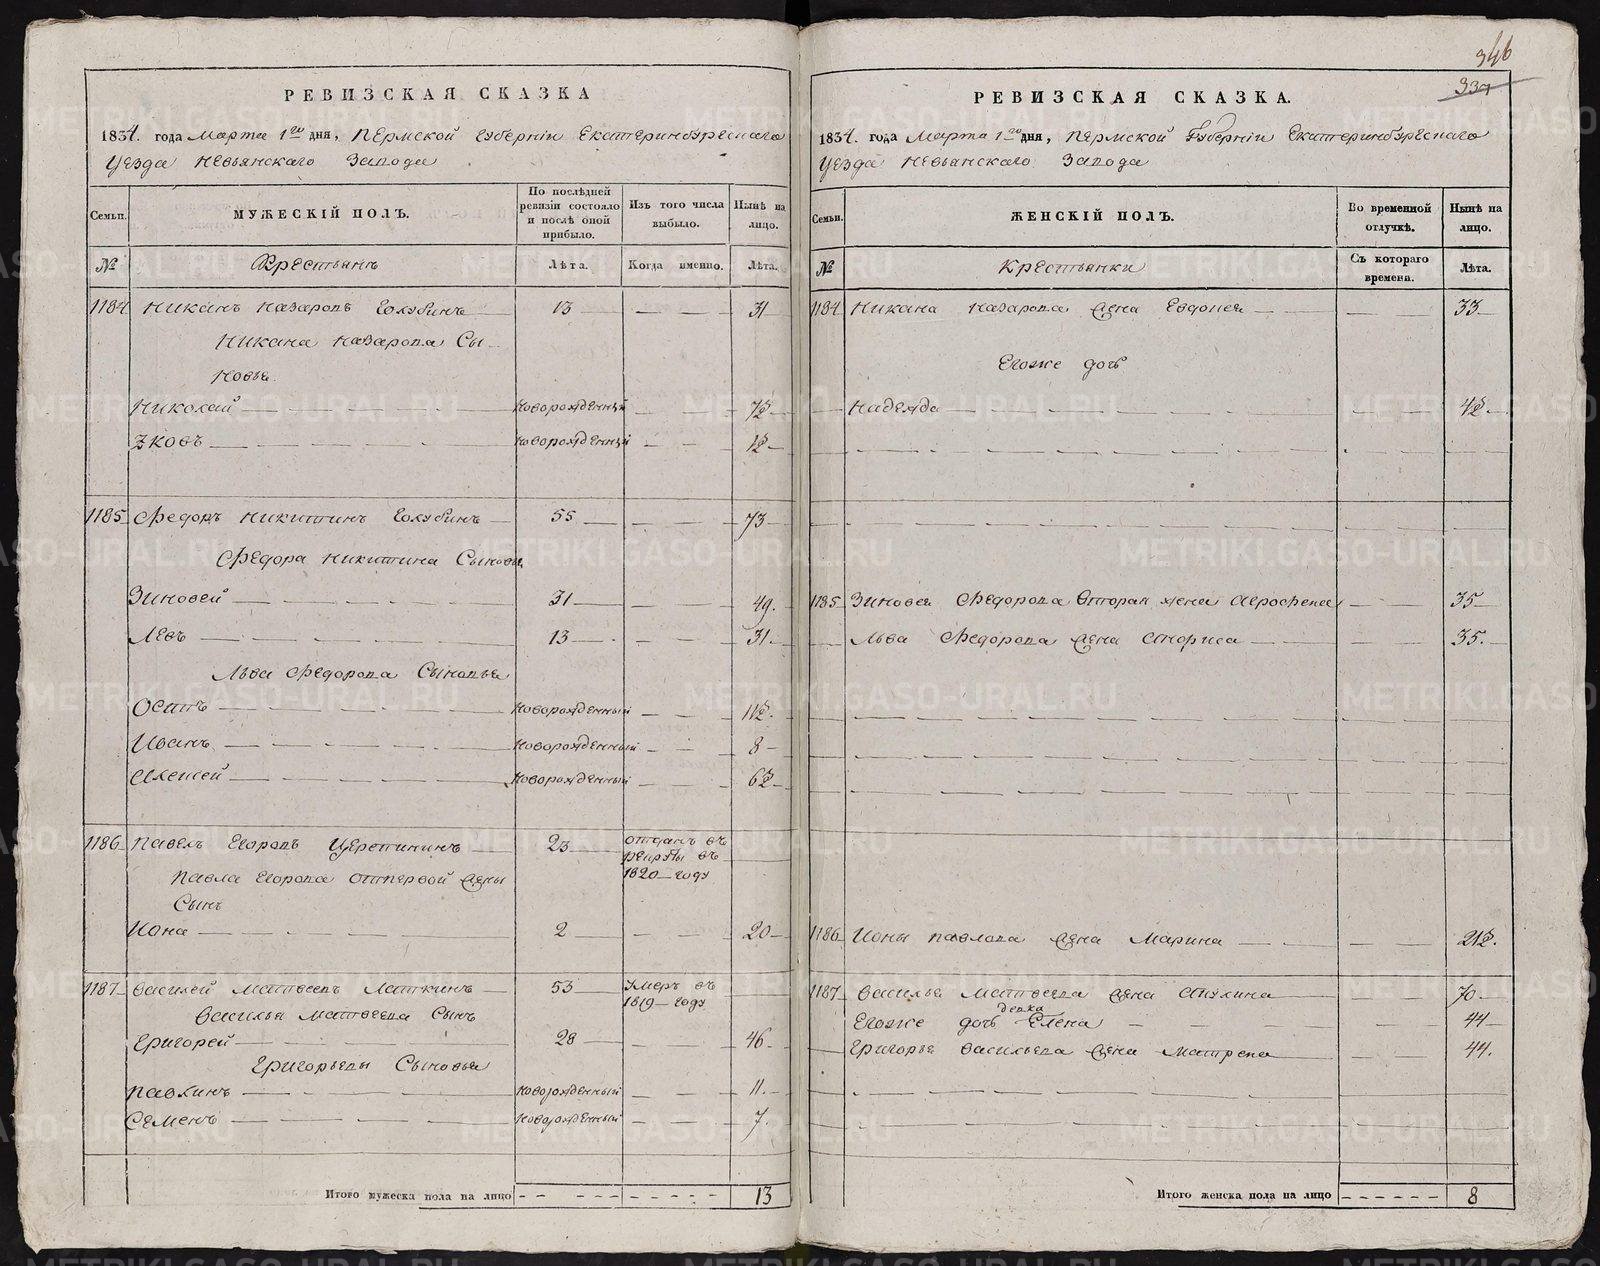 346
337
РЕВИЗСКАЯ СКАЗКА
1834. года Марта 1го дня, Пермской Губерніи Екатеринбургскаго
уезда Невьянскаго Завода
Семьи. МУЖЕСКІЙ ПОЛЪ. По послѣдней ревизіи состояло и послѣ оной прибыло. Изъ того числа выбыло. Нынѣ на лицо.
№ Крестьянъ Лѣта. Когда именно. Лѣта.
1184 Никанъ Назаровъ Голубинъ 13 — — — 31
Никана Назарова Сы-
новья
Николай новорожденный — — —
Яковъ новорожденный — — —
1185 Федоръ Никитинъ Голубинъ 55 — — — 73
Федора Никитина Сыновья
Зиновей 31 — — — 49.
Левъ 13 — — — 31.
Льва Федорова Сыновья
Осипъ новорожденный — — —
Иванъ новорожденный — — — 8
Алексей новорожденный — — —
1186 Павелъ Егоровъ 23 отданъ въ
рекруты въ
1820 году
Павла Егорова отпервой жены
Сынъ
Иона 2 — — — 20
1187 Василей Матвеевъ Латкинъ 53 умеръ въ
1819 году
Василья Матвеева Сынъ
Григорей 28 — — — 46
Григорьевы Сыновья
Павлинъ новорожденный — — — 11.
Семенъ новорожденный — — — 7.
Итого мужеска пола на лицо 13
РЕВИЗСКАЯ СКАЗКА.
1834. года Марта 1го дня, Пермской Губерніи Екатеринбургскаго
уезда Невьянскаго Завода
Семьи. ЖЕНСКІЙ ПОЛЪ. Во временной отлучкѣ. Нынѣ на лицо.
№ Крестьянки Съ котораго времени. Лѣта.
1184 Никана Назарова жена Евдокея — — 33
Егоже дочь
Надежда — —
1185 Зиновея Федорова вторая жена Агрофена — — 35
Льва Федорова жена — — 35.
1186 Ионы Павлова жена Марина — —
1187 Василья Матвеева жена Акулина 70
девка
Егоже дочь Елена 44
Григорья Васильева жена Матрена 44.
Итого женска пола на лицо 8
METRIKI.GASO-URAL.RU